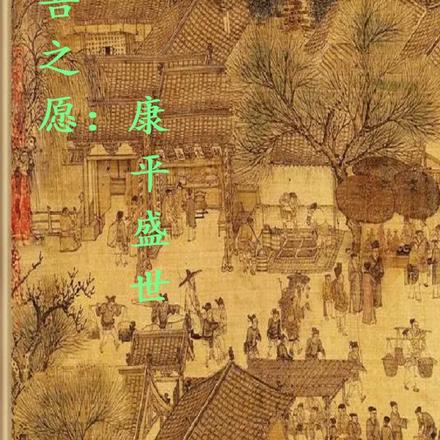 吾之愿：
康平盛世